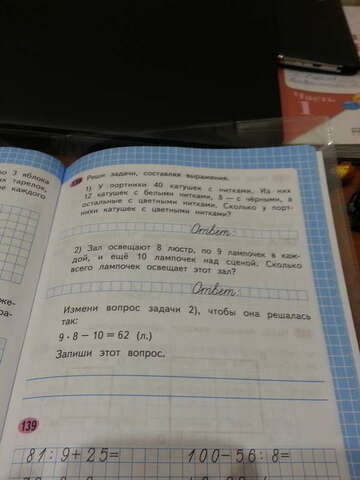 Часть
1
о 3 яблока
тарелок,
каждого
Реши задачи, составляя выражения.
1) У портнихи 40 катушек с нитками. Из них
12 катушек с белыми нитками, 8 — с чёрными, а
остальные с цветными нитками. Сколько у порт-
нихи катушек с цветными нитками?
Ответ:
2) Зал освещают 8 люстр, по 9 лампочек в каж-
дой, и ещё 10 лампочек над сценой. Сколько
всего лампочек освещает этот зал?
Ответ:
Измени вопрос задачи 2), чтобы она решалась
так:
9 · 8 − 10 = 62 (л.)
Запиши этот вопрос.
139
81 : 9 + 25 = 100 − 56 : 8 =